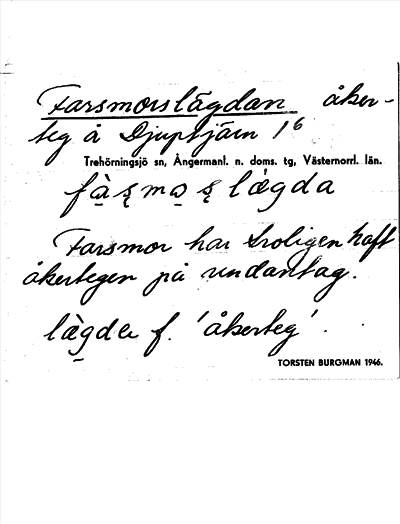 Farsmorslägdan åker-
teg å Djuptjärn 1⁶
Trehörningsjö sn, Ångermanl. n. doms. tg, Västernorrl. län.
fàșmo̱ș làgda
Farsmor har troligen haft
åkertegen på undantag.
lägde f. 'åkerteg'.
TORSTEN BURGMAN 1946.